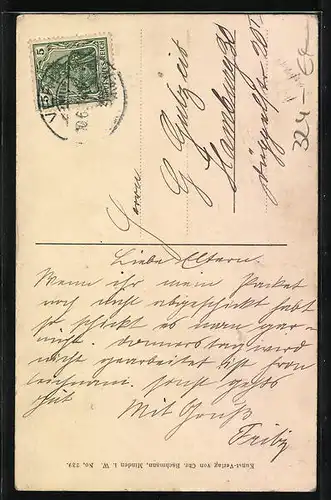 5
10.6
Herrn
G Gutzeit
Hamburg 20
324-64
Liebe Eltern.
Wenn ihr mein Packet
noch nicht abgeschickt habt
so schickt es man gar-
nicht. Donnerstag wird
nicht gearbeitet ist Fron
leichnam. sonst gehts
gut
Mit Gruß
Fritz
Kunst-Verlag von Chr. Bachmann, Minden i. W. No. 239.